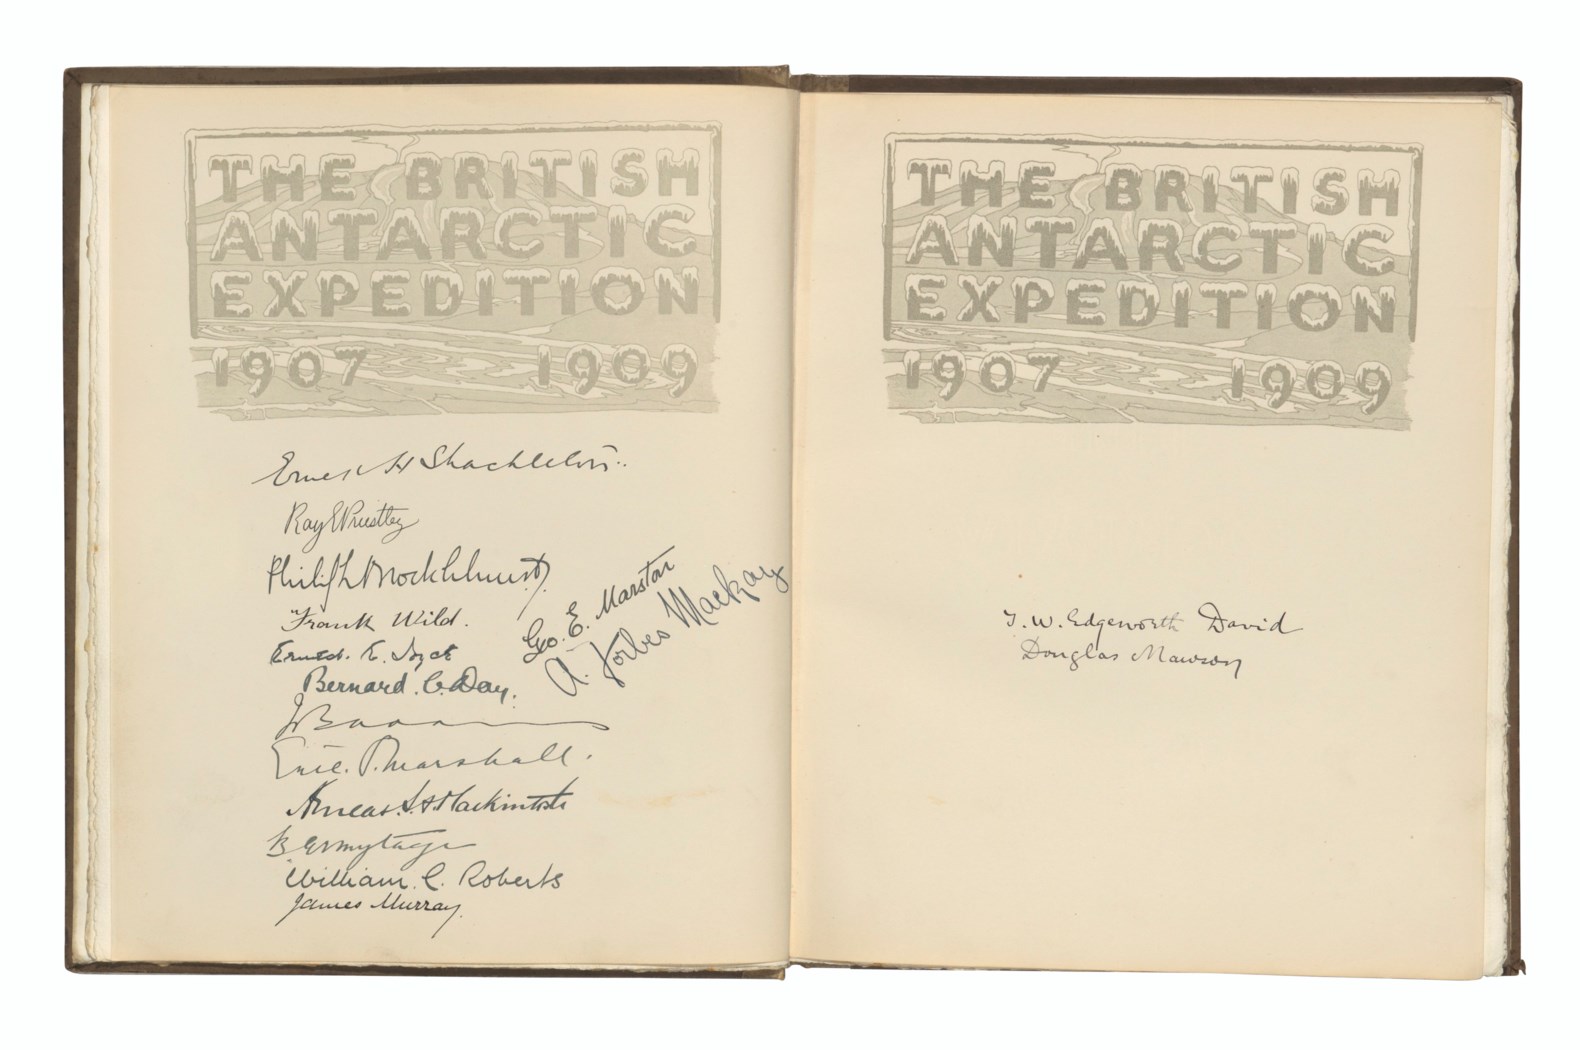 THE BRITISH
ANTARCTIC
EXPEDITION
1907 1909
Ernest H Shackleton
Ray E Priestley
Philip L Brocklehurst
Frank Wild.
Ernest. E. Joyce
Bernard. C. Day.
Geo. E. Marston
A. Forbes Mackay
Eric. P. Marshall.
Aeneas. L. A. Mackintosh
B Armytage
William. C. Roberts
James Murray.
THE BRITISH
ANTARCTIC
EXPEDITION
1907 1909
T. W. Edgeworth David
Douglas Mawson